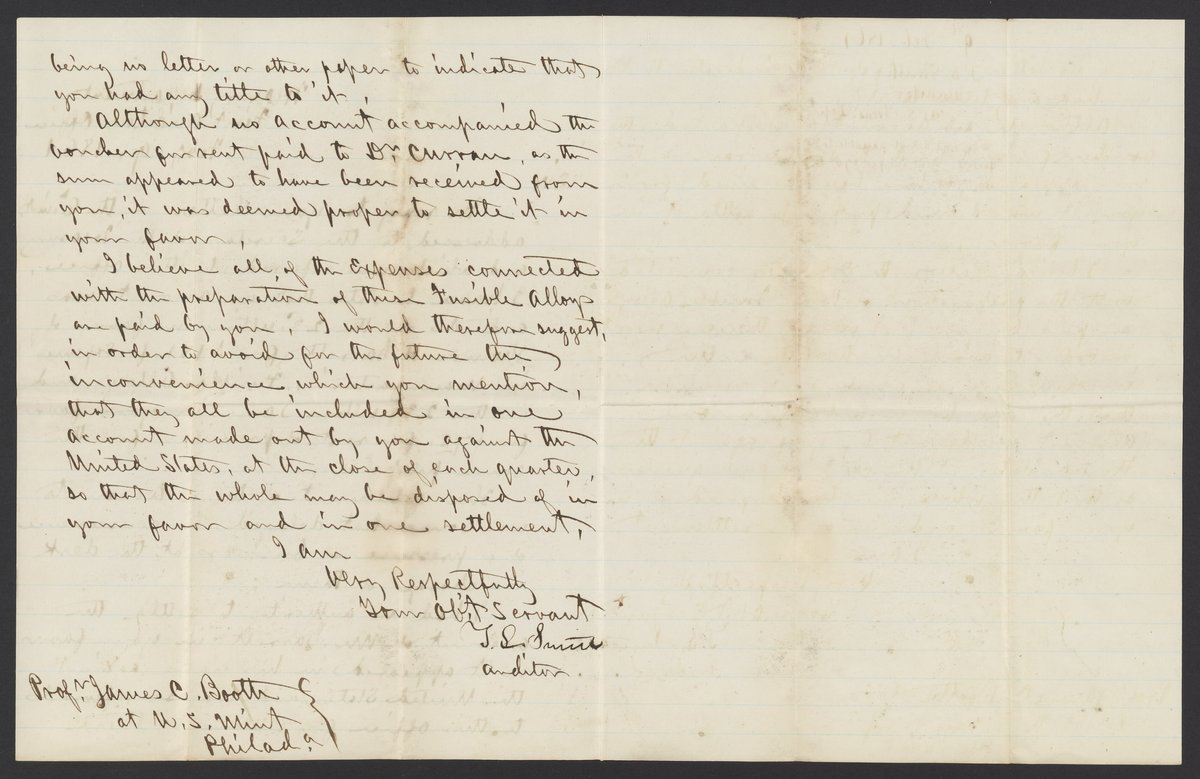 being no letter or other paper to indicate that
you had any title to it,
Although no account accompanied the
voucher for rent paid to Dr. Curran, as the
sum appeared to have been received from
you, it was deemed proper to settle it in
your favor,
I believe all, of the Expenses connected
with the preparation of these Fusible Alloys
are paid by you, I would therefore suggest,
in order to avoid for the future the
inconvenience which you mention,
that they all be included in one
account made out by you against the
United States, at the close of each quarter,
so that the whole may be disposed of in
your favor and in one settlement,
I am
Very Respectfully
Your Obt Servant
T. L. Smith
Auditor
Profr James C. Booth
at U. S. Mint
Philada